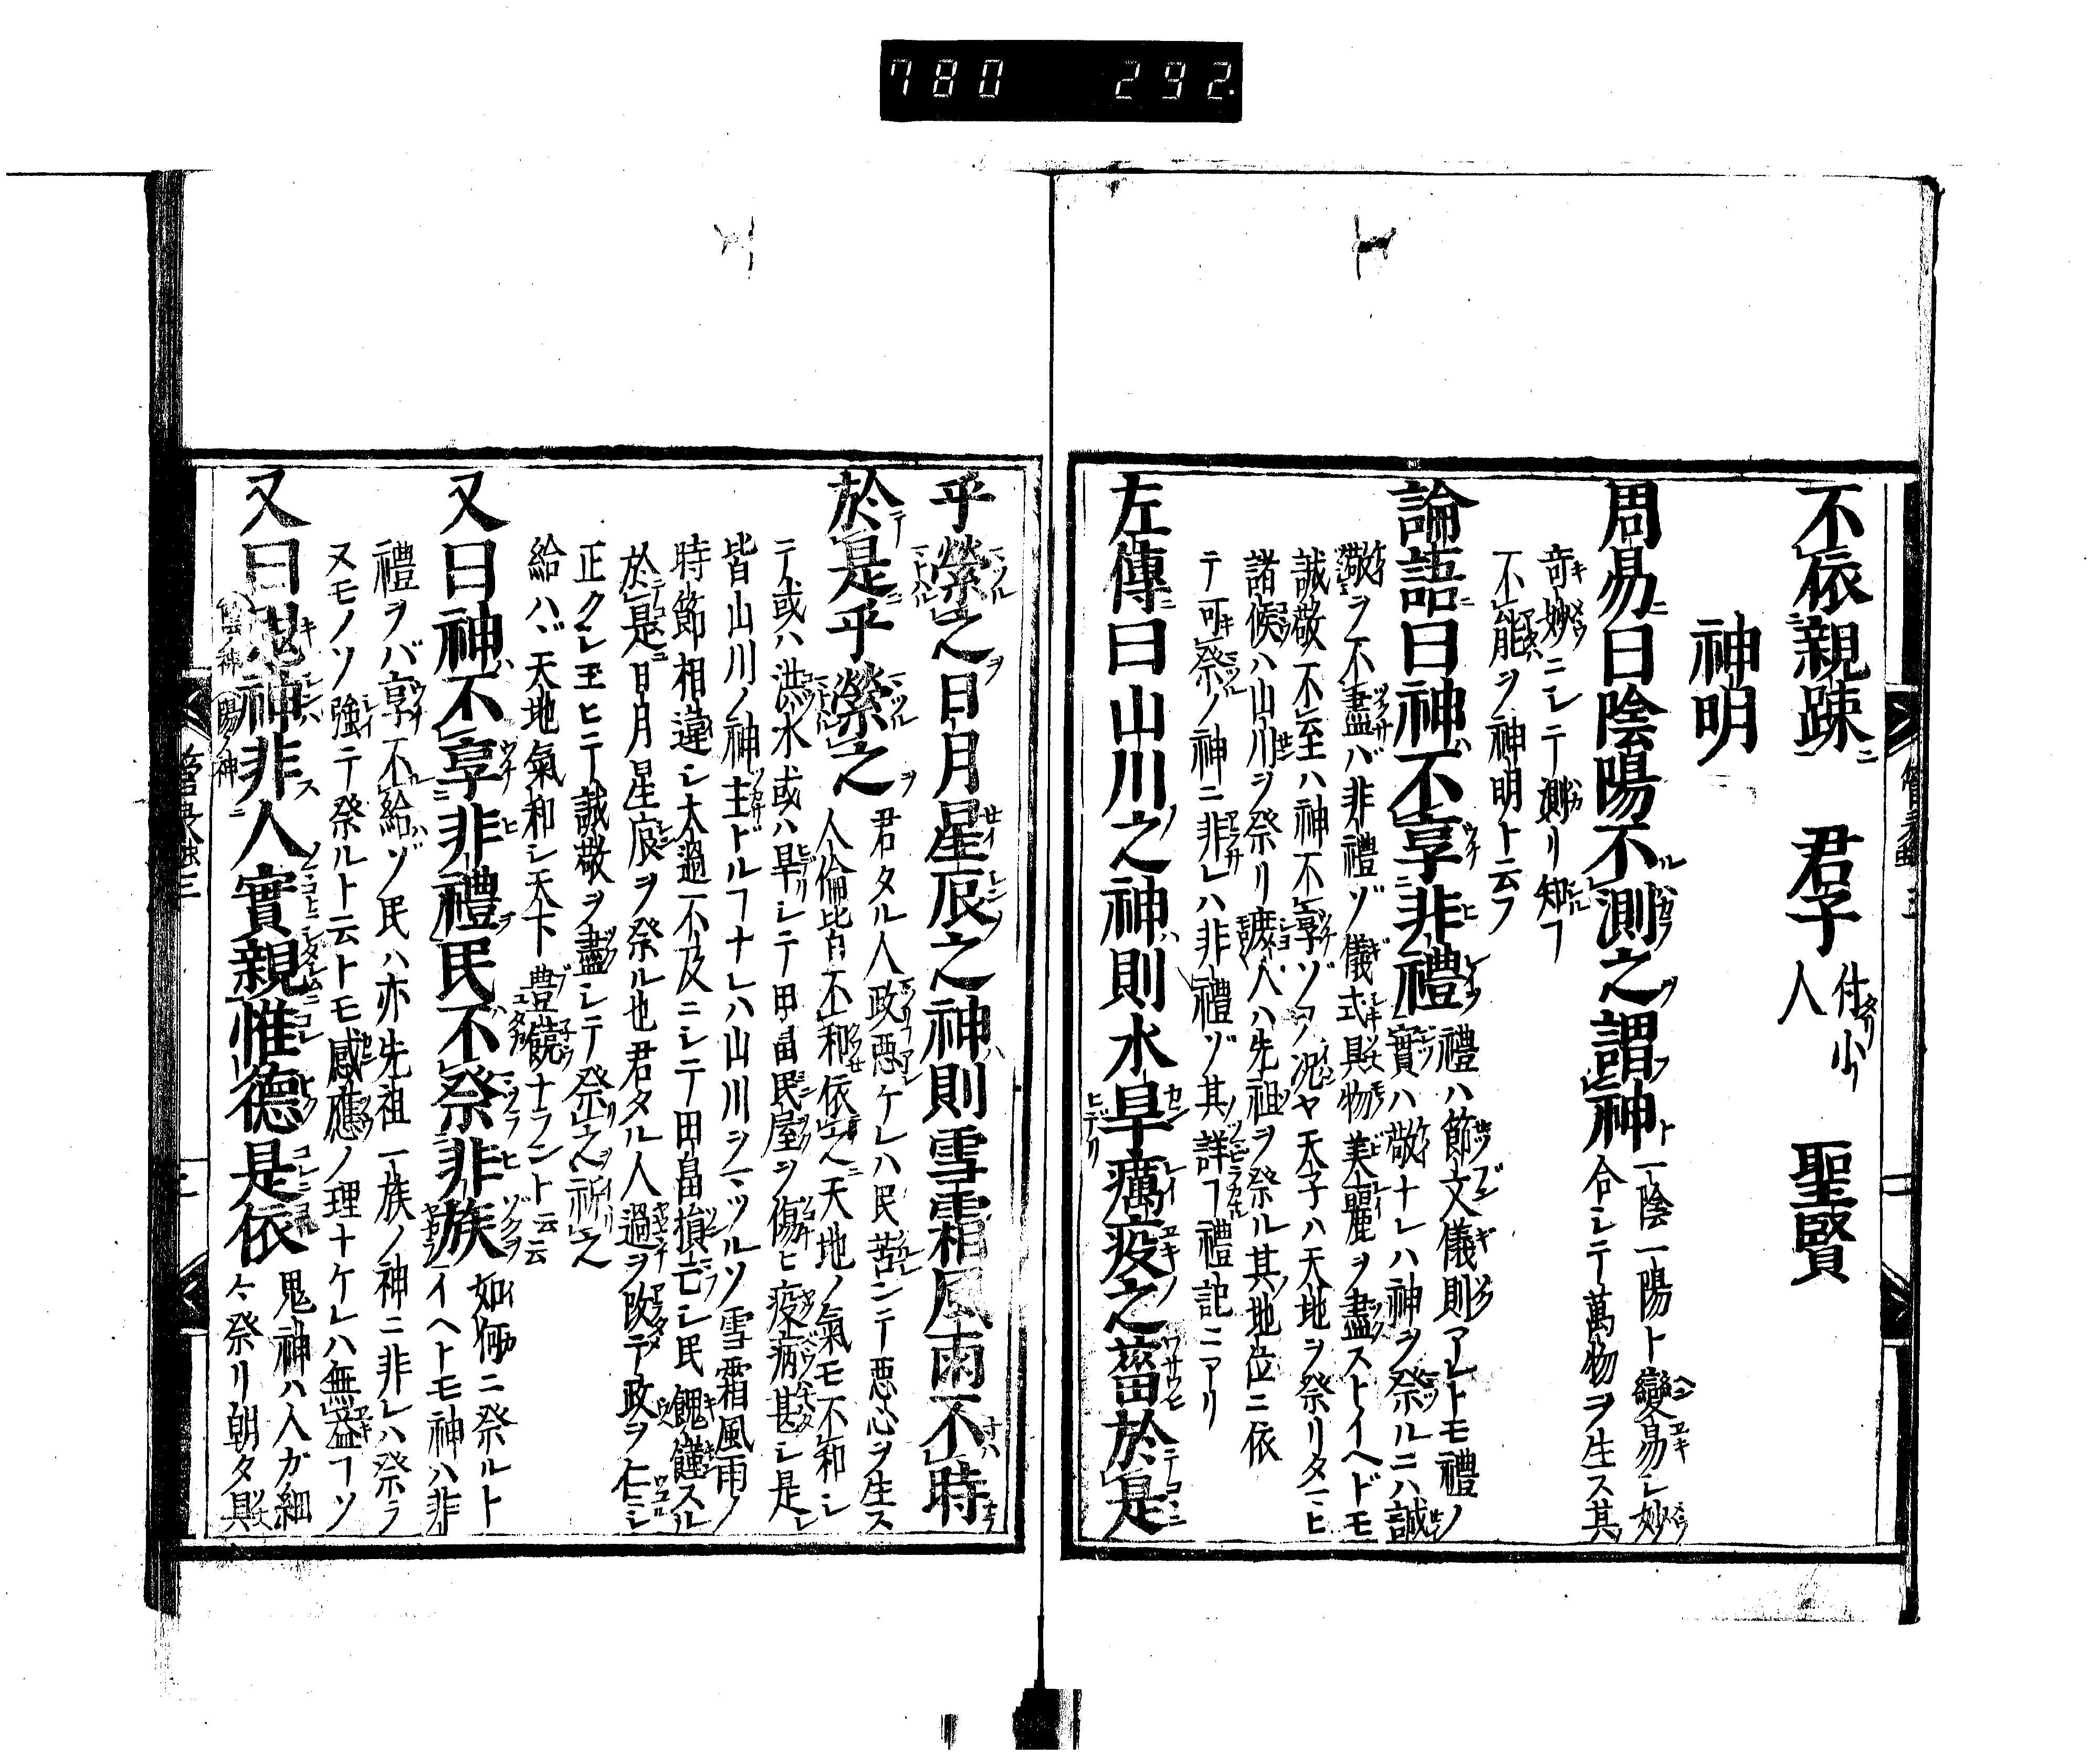 780 292.
不依親疎 君子 付タリ小人 聖賢
神明
周易ニ曰陰陽不測之謂神ト 一陰一陽ト變易シ妙
合シテ萬物ヲ生ス其
奇妙ニシテ測リ知ルヿ
不能ヲ神明ト云フ
論語ニ曰神ハ不享非禮 禮ハ節文儀則アレトモ禮ノ
實ハ敬ナレハ神ヲ祭ルニハ誠
敬ヲ不盡バ非禮ゾ儀式具物美麗ヲ盡ストイヘドモ
誠敬不至ハ神不享ゾヲ况ヤ天子ハ天地ヲ祭リタマヒ
諸候ハ山川ヲ祭リ諸人ハ先祖ヲ祭ル其地位ニ依
テ可祭ノ神ニ非レハ非禮ゾ其詳ヿ禮記ニアリ
左傳ニ曰山川之神ハ則水旱癘疫之菑於是
乎禜之日月星辰之神ハ則雪霜風雨不時
於是乎禜之 君タル人政惡ケレハ民苦ンテ悪心ヲ生ス
人倫皆不和依之天地ノ氣モ不和シ
テ或ハ洪水或ハ旱シテ田畠民屋ヲ傷ヒ疫病甚シ是レ
皆山川ノ神主ドルヿナレハ山川ヲマツルソ雪霜風雨ノ
時節相違シ太過不及ニシテ田畠損亡シ民餽饉スル
於是日月星辰ヲ祭ル也君タル人過ヲ改テ政ヲ仁ニシ
正クシ玉ヒテ誠敬ヲ盡シテ祭之祈之
給ハヾ天地氣和シ天下豊饒ナラント云云
又曰神ハ不享非禮民ハ不祭非族 如何ニ祭ルト
イヘトモ神ハ非
禮ヲバ享不給ゾ民ハ亦先祖一族ノ神ニ非レハ祭ラ
ヌモノソ強テ祭ルト云トモ感應ノ理ナケレハ無益ヿソ
又曰鬼神ハ非人實親惟德是依 鬼神ハ人ガ細
々祭リ朝タ具
陰ノ神 陽ノ神